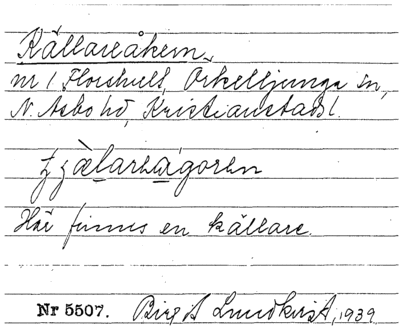 Källareåkern
nr 1 Florshult, Örkelljunga sn,
N. Åsbo hd, Kristianstads l.
Här finnes en källare.
Nr 5507. Birgit Lundkvist, 1939.